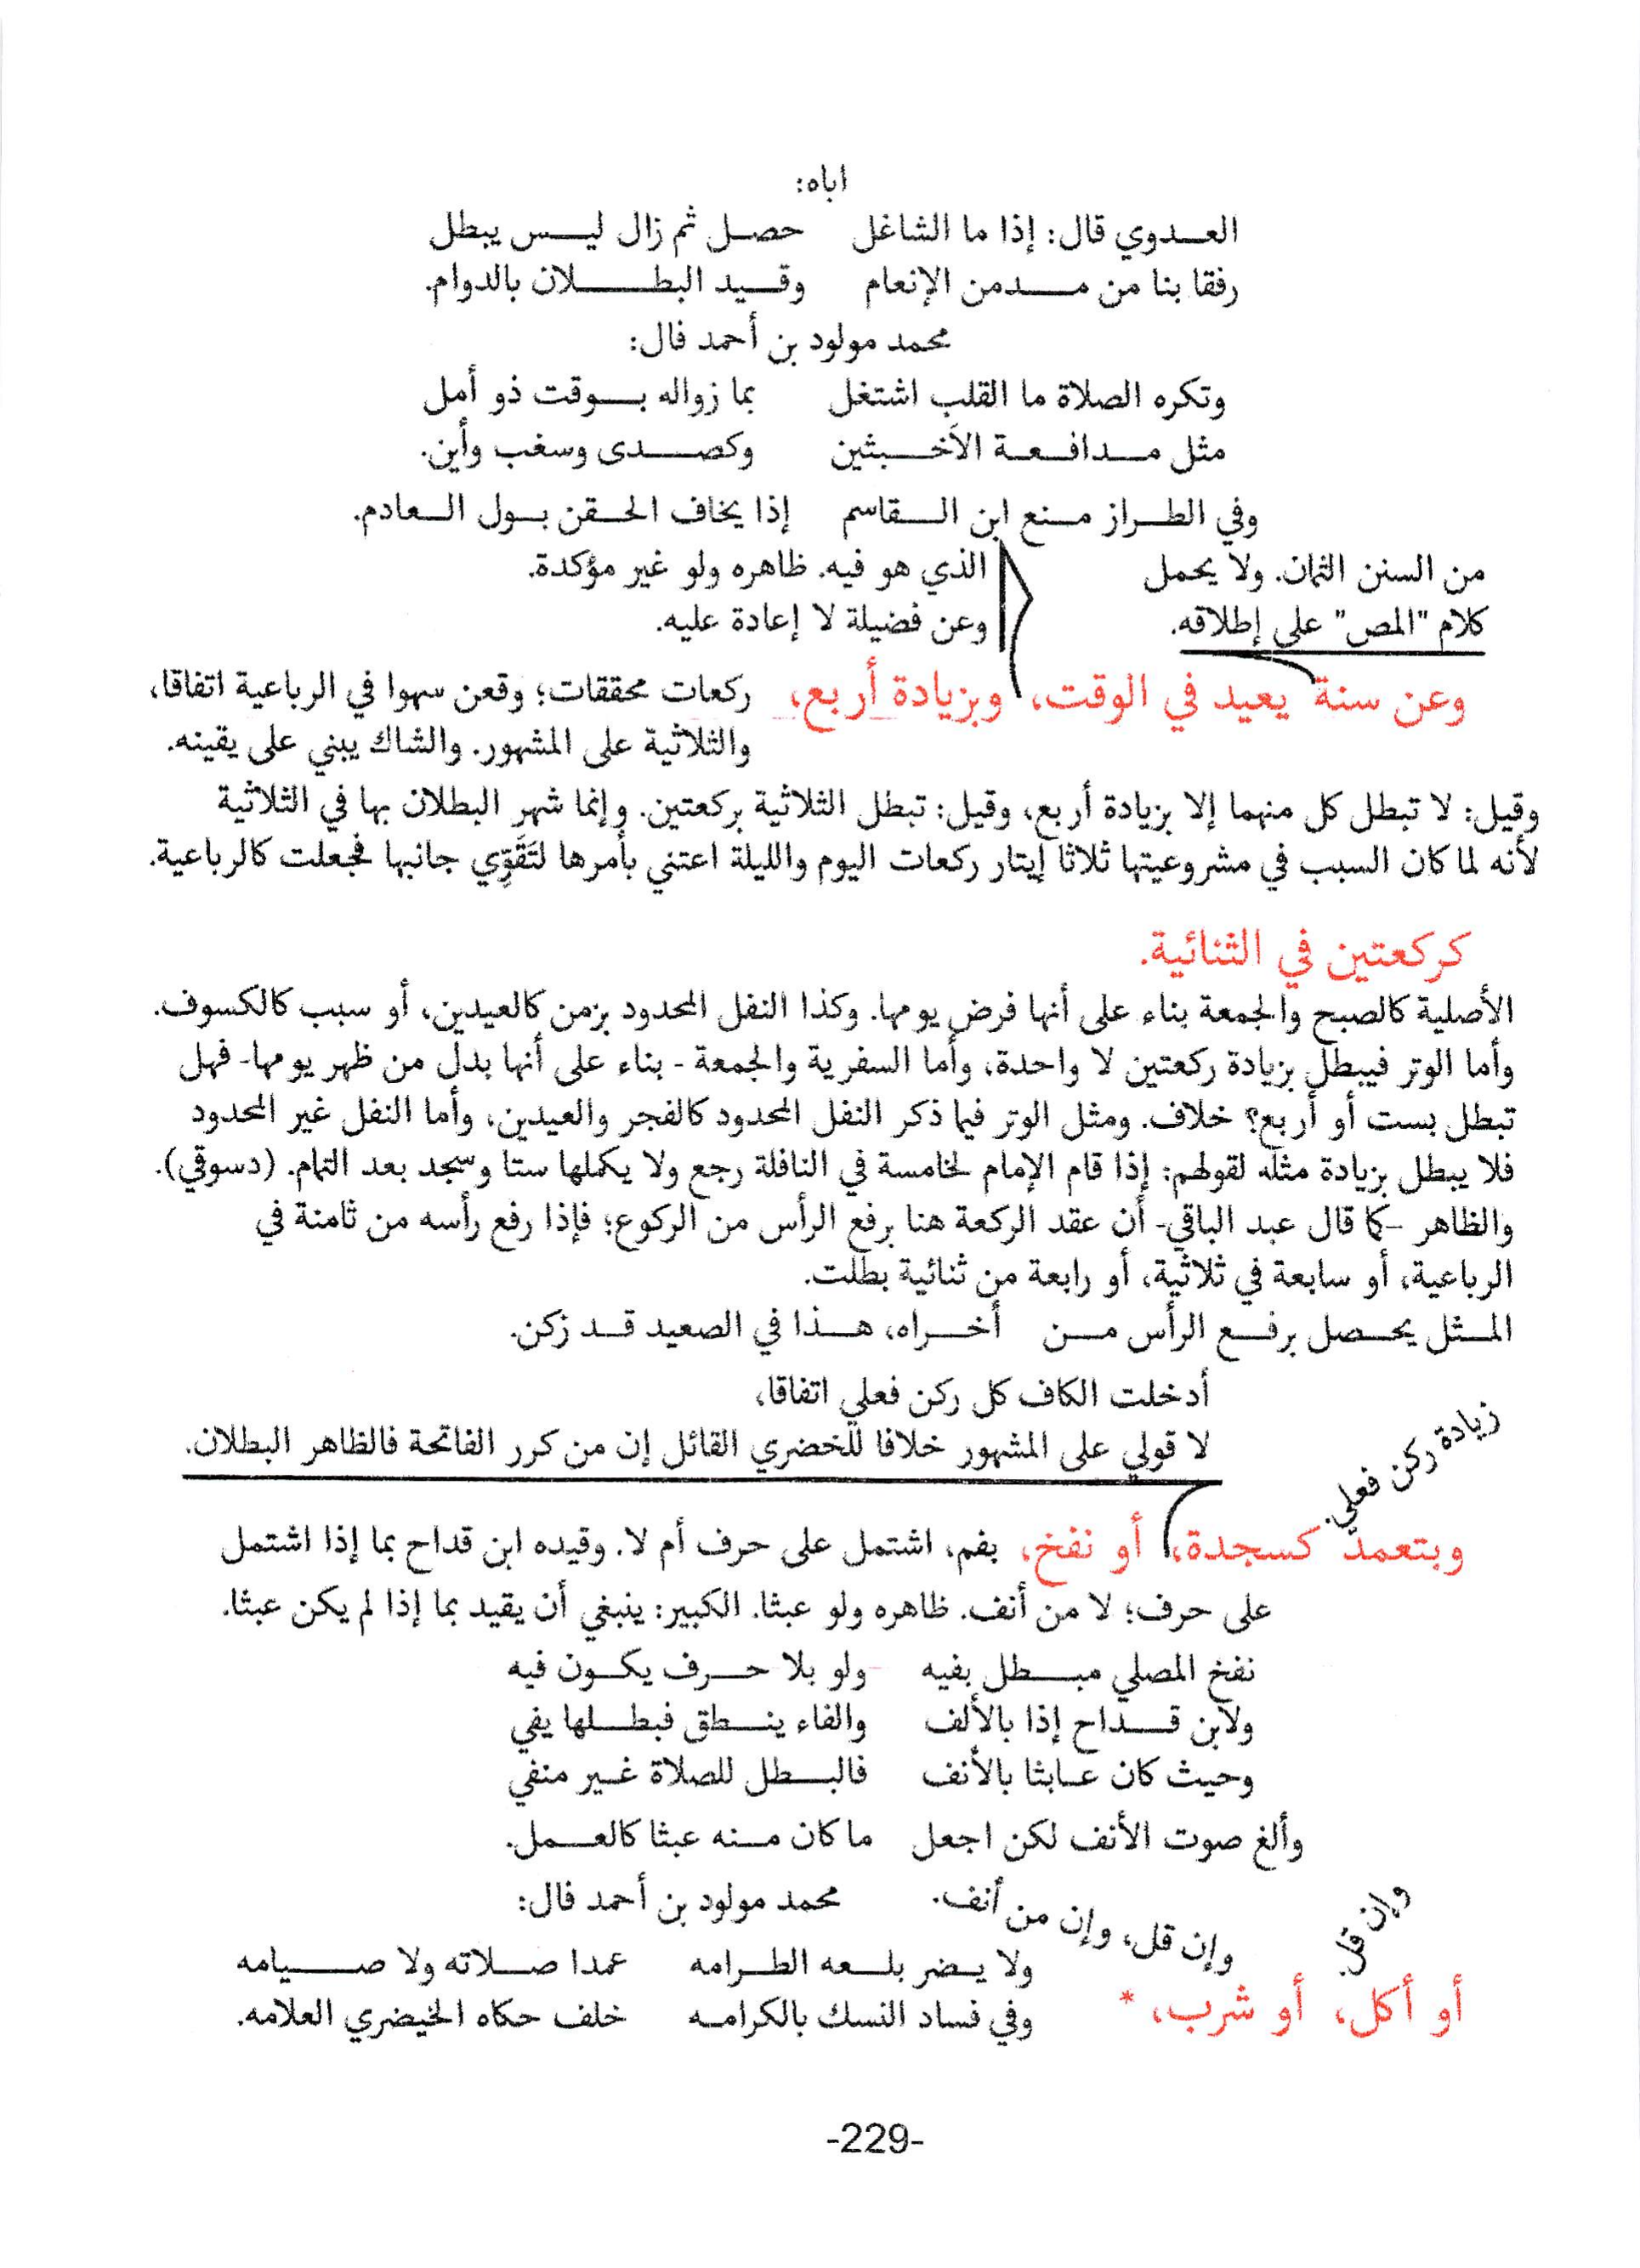 اباه:
العدوي قال: إذا ما الشاغل حصل ثم زال ليس يبطل
رفقا بنا من مدمن الإنعام وقيد البطلان بالدوام.
محمد مولود بن أحمد فال:
وتكره الصلاة ما القلب اشتغل بما زواله بوقت ذو أمل
مثل مدافعة الاَخبثين وكصدى وسغب وأين.
وفي الطراز منع ابن القاسم إذا يخاف الحقن بول العادم.
من السنن الثمان. ولا يحمل
كلام "المص" على إطلاقه.
الذي هو فيه. ظاهره ولو غير مؤكدة.
وعن فضيلة لا إعادة عليه.
وعن سنة يعيد في الوقت، وبزيادة أربع، ركعات محققات؛ وقعن سهوا في الرباعية اتفاقا،
والثلاثية على المشهور. والشاك يبني على يقينه.
وقيل: لا تبطل كل منهما إلا بزيادة أربع، وقيل: تبطل الثلاثية بركعتين. وإنما شهر البطلان بها في الثلاثية
لأنه لما كان السبب في مشروعيتها ثلاثا إيتار ركعات اليوم والليلة اعتني بأمرها لتَقَوِّي جانبها فجعلت كالرباعية.
كركعتين في الثنائية.
الأصلية كالصبح والجمعة بناء على أنها فرض يومها. وكذا النفل المحدود بزمن كالعيدين، أو سبب كالكسوف.
وأما الوتر فيبطل بزيادة ركعتين لا واحدة، وأما السفرية والجمعة - بناء على أنها بدل من ظهر يومها- فهل
تبطل بست أو أربع؟ خلاف. ومثل الوتر فيما ذكر النفل المحدود كالفجر والعيدين، وأما النفل غير المحدود
فلا يبطل بزيادة مثله لقولهم: إذا قام الإمام لخامسة في النافلة رجع ولا يكملها ستا وسجد بعد التمام. (دسوقي).
والظاهر –كما قال عبد الباقي- أن عقد الركعة هنا برفع الرأس من الركوع؛ فإذا رفع رأسه من ثامنة في
الرباعية، أو سابعة في ثلاثية، أو رابعة من ثنائية بطلت.
المثل يحصل برفع الرأس من أخراه، هذا في الصعيد قد زكن.
أدخلت الكاف كل ركن فعلي اتفاقا،
لا قولي على المشهور خلافا للخضري القائل إن من كرر الفاتحة فالظاهر البطلان.
زيادة ركن فعلي.
وبتعمد كسجدة، أو نفخ، بفم، اشتمل على حرف أم لا. وقيده ابن قداح بما إذا اشتمل
على حرف؛ لا من أنف. ظاهره ولو عبثا. الكبير: ينبغي أن يقيد بما إذا لم يكن عبثا.
نفخ المصلي مبطل بفيه ولو بلا حرف يكون فيه
ولابن قداح إذا بالألف والفاء ينطق فبطلها يفي
وحيث كان عابثا بالأنف فالبطل للصلاة غير منفي
وألغ صوت الأنف لكن اجعل ما كان منه عبثا كالعمل.
وإن قل.
وإن قل، وإن من أنف.
محمد مولود بن أحمد فال:
أو أكل، أو شرب، * ولا يضر بلعه الطرامه عمدا صلاته ولا صيامه
وفي فساد النسك بالكرامه خلف حكاه الخيضري العلامه.
-229-